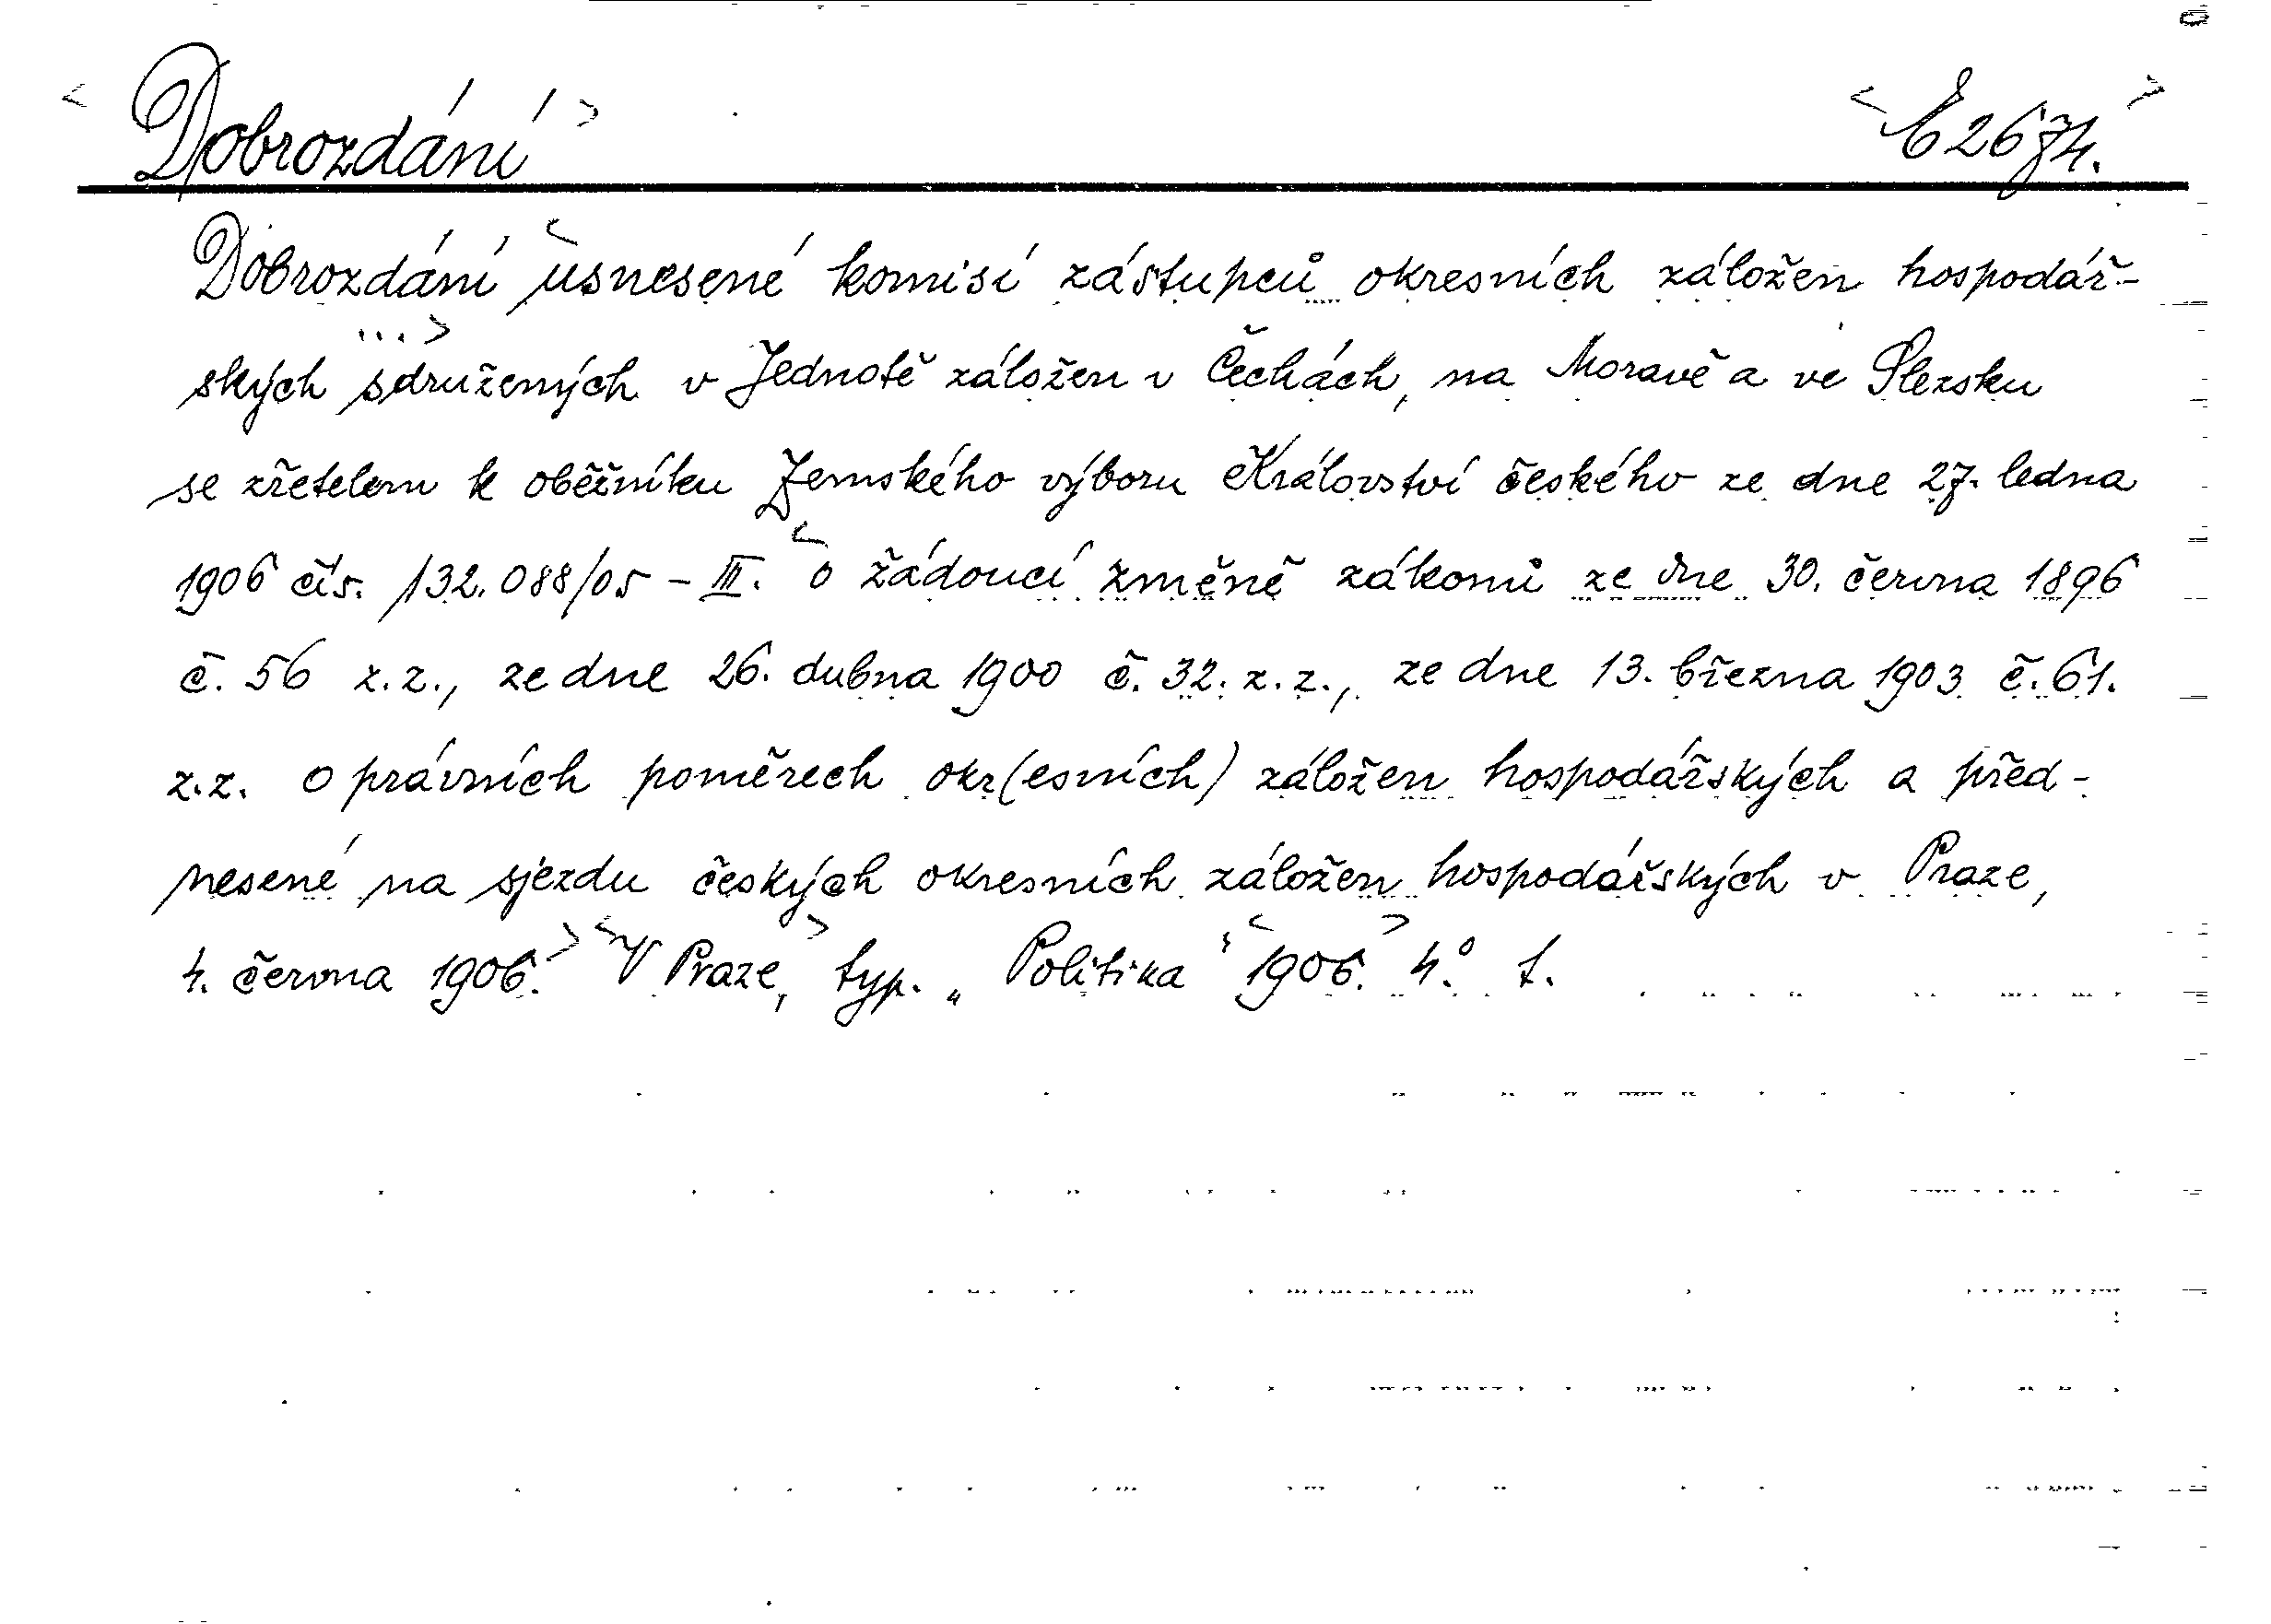 <Dobrozdání> <E 2674.>
Dobrozdání <usnesené komisí zástupců okresních záložen hospodář-
ských ...> sdružených v Jednotě záložen v Čechách, na Moravě a ve Slezsku
se zřetelem k oběžníku Zemského výboru Království českého ze dne 27. ledna
1906 čís. 132.088/05 - III. <o žádoucí změně zákonů ze dne 30. června 1896
č. 56 z.z., ze dne 26. dubna 1900 č. 32. z.z., ze dne 13. března 1903 č. 61.
z.z. o právních poměrech okr(esních) záložen hospodářských a před-
nesené na sjezdu českých okresních záložen hospodářských v Praze,
4. června 1906.> <V Praze,> typ. „Politika‟ <1906.> 4.° f.